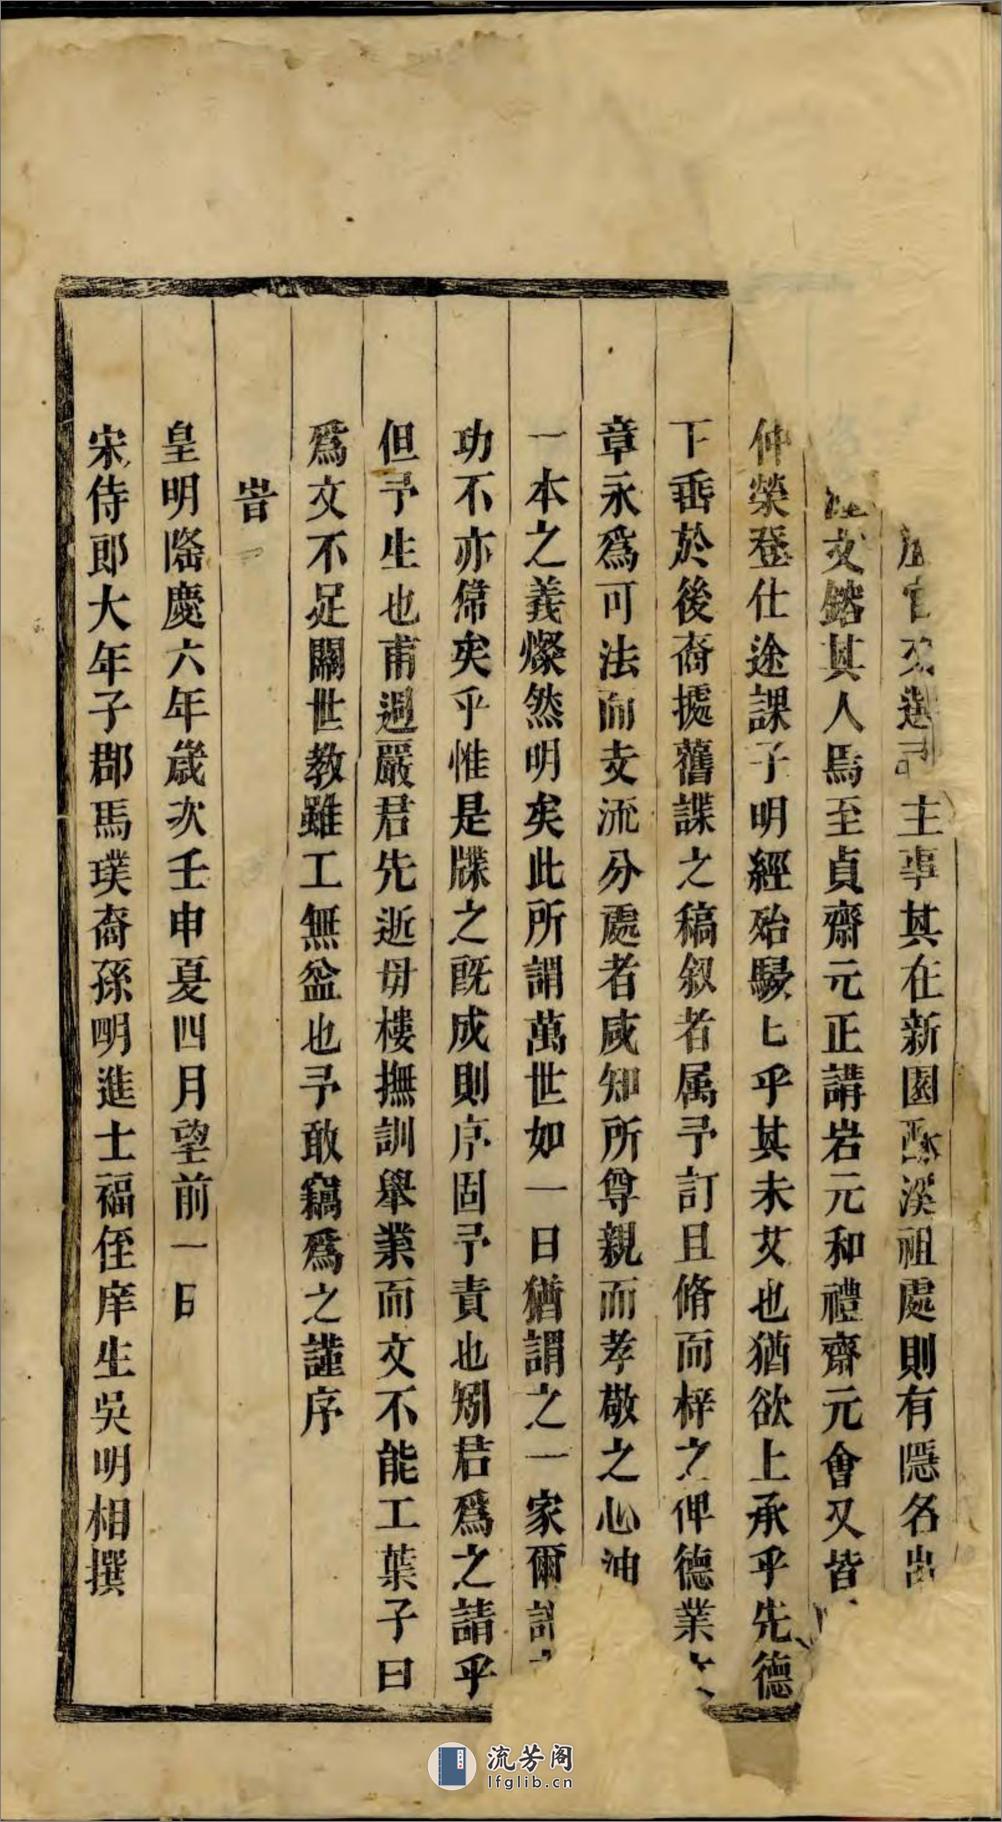 官 選 主事其在新園 溪祖處則有隱名出
文 其人焉至貞齋元正講岩元和禮齋元會又皆
仲榮登仕途課子明經殆駸匕乎其未艾也猶欲上承乎先德
下垂於後裔據舊諜之稿叙者属予訂且脩而梓之俾德業
章永爲可法而支流分處者咸知所尊親而孝敬之心油
一本之義燦然明矣此所謂萬世如一日猶謂之一家爾
功不亦偉矣乎惟是牒之旣成則序固予責也矧君爲之請乎
但予生也甫週嚴君先逝毋樓撫訓舉業而文不能工葉子曰
爲文不足關世教雖工無益也予敢竊爲之謹序
旹
皇明隆慶六年歲次壬申夏四月望前一日
宋侍郎大年子郡馬璞裔孫明進士福侄庠生吳明相撰
流芳阁
lfglib.cn